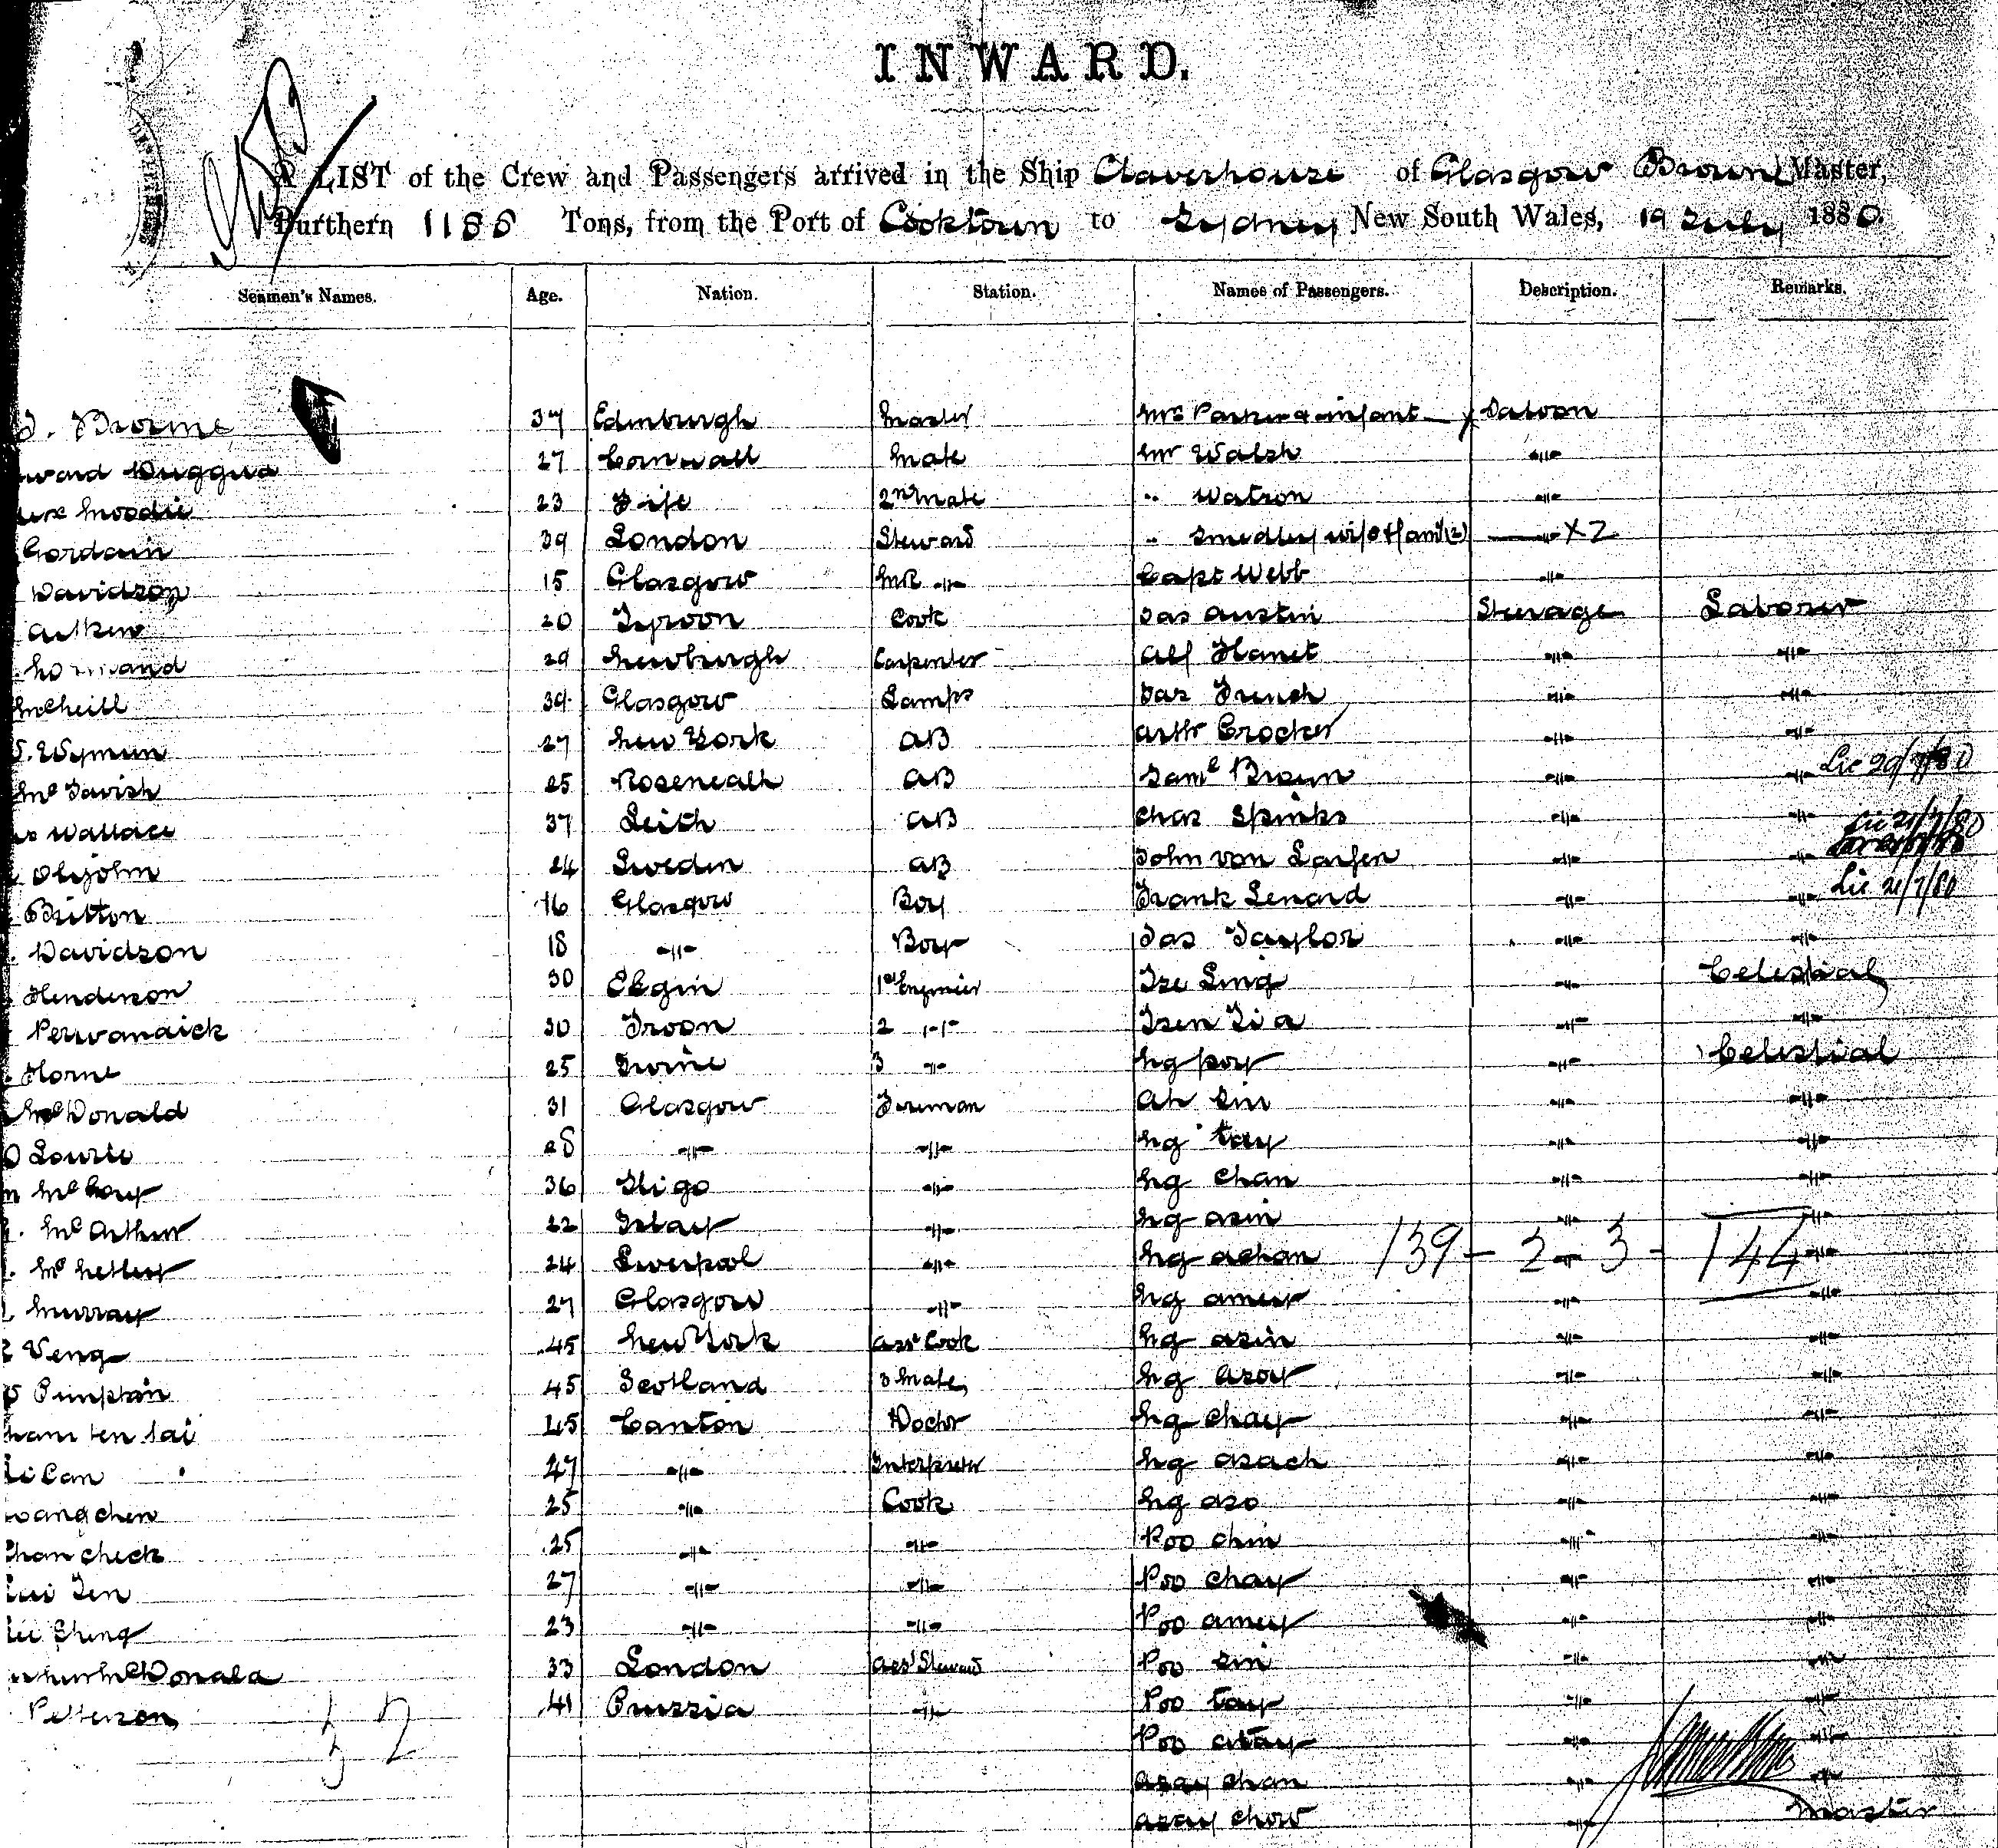 INWARD.
A LIST of the Crew and Passengers arrived in the Ship Claverhouse of Glasgow Browne Master,
Burthern 1186 Tons, from the Port of Cooktown to Sydney New South Wales, 19 July 1880.
Seamen's Names. Age. Nation. Station. Names of Passengers. Description. Remarks.
Browne 37 Edinburgh Master Mrs Parker & infant Saloon
27 Cornwall Mate Mr Walsh -"-
Moodie 23 Fife 2nd Mate " Watson -"-
Gordain 39 London Steward " Smedley wife & fam (2) -"- X2
Davidson 15 Glasgow -"- Capt Webb -"-
Aitken 20 Tyroon Cook Jas Austin Steerage Laborer
29 Newburgh Carpenter Alf Hamet -"- -"-
McNeill 39 Glasgow Lamps Jas French -"- -"-
Wyman 27 New York AB Arthr Crocker -"- -"-
McTavish 25 Roseneath AB Saml Brown -"- -"- Lic 20/7/80
Wallace 37 Leith AB Chas Spinks -"- -"- Lic 21/7/80
24 Sweden AB John von Larfen -"- -"-
Britton 16 Glasgow Boy Frank Lenard -"- -"- Lic 21/7/80
Davidson 18 -"- Boy Jas Taylor -"- -"-
Henderson 30 Elgin 1st Engineer Tze Ling -"- Celestial
Perwandick 30 Troon 2 -"- Tsen Tia -"- -"-
Horne 25 Irvine 3 -"- Ng poy -"- Celestial
McDonald 31 Glasgow Fireman Ah Sin -"- -"-
Lourie 28 -"- -"- Ng tay -"- -"-
McCoy 36 Sligo -"- Ng Chan -"- -"-
McArthur 22 Islay -"- Ng asin -"- -"-
24 Liverpool -"- Ng achan 139 - 2 - 3 - 144 -"-
Murray 27 Glasgow -"- Ng amey -"- -"-
Veng 45 New York Asst Cook Ng asin -"- -"-
Pimpton 45 Scotland 3 Mate Ng Asoy -"- -"-
45 Canton Doctor Ng Chay -"- -"-
Li Can 47 -"- Interpreter Ng asach -"- -"-
25 -"- Cook Ng aso -"- -"-
Chan check 25 -"- -"- Poo chin -"- -"-
27 -"- -"- Poo chay -"- -"-
23 -"- -"- Poo amey -"- -"-
McDonald 33 London Asst Steward Poo sin -"- -"-
Petterson 41 Prussia -"- Poo tay -"- -"-
Poo atay -"- -"-
Asay chan -"- -"-
Asay chow -"- Master